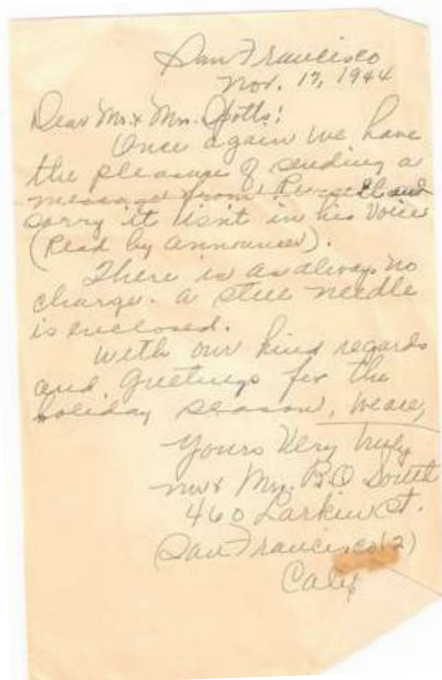 San Francisco
Nov. 17, 1944
Dear Mr. & Mrs. Potts:
Once again we have
the pleasure of sending a
message from Russell and
sorry it isn't in his voice
(Read by announcer).
There is as always no
charge. A steel needle
is enclosed.
With our kind regards
and greetings for the
holiday season, we are,
Yours Very truly
Mr & Mrs. B.O South
460 Larkin St.
San Francisco (2)
Calif